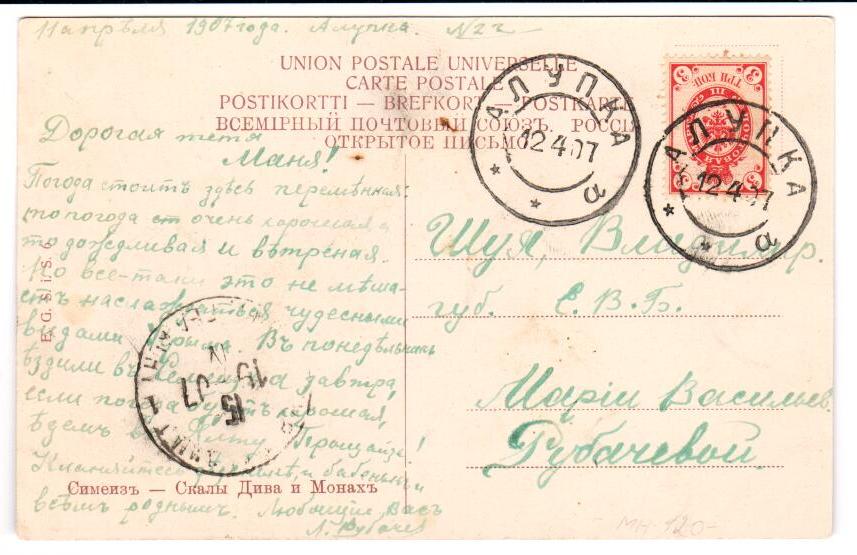 11 апрѣля 1907 года. Алупка. №2й
UNION POSTALE UNIVERSELLE
CARTE POSTALE
POSTIKORTTI — BREFKORT — POSTKARTE
ВСЕМІРНЫЙ ПОЧТОВЫЙ СОЮЗЪ. РОССІ
ОТКРЫТОЕ ПИСЬМО
АЛУПКА
12 4 07
а
3 3
ТРИ КОП.
3 3
АЛУПКА
12 4 07
а
Дорогая тетя
Маня!
Погода стоитъ здѣсь перемѣнная:
то погода очень хорошая, а
то дождливая и вѣтреная.
Но все-таки это не мѣша-
етъ наслаждаться чудесными
видами Крыма. Въ понедѣльникъ
ѣздили въ завтра,
если погода будетъ хорошая,
ѣдемъ въ Ялту. Прощайте!
Кланяйтесь и бабенькѣ и
всѣмъ роднымъ. Любящій Васъ
Л. Рубачев
E. G. S. i. S. 6
15
07
Симеизъ — Скалы Дива и Монахъ
Шуя, Владимир.
губ. С. В. Б.
Маріи Васильев.
Рубачевой.
МК-120-